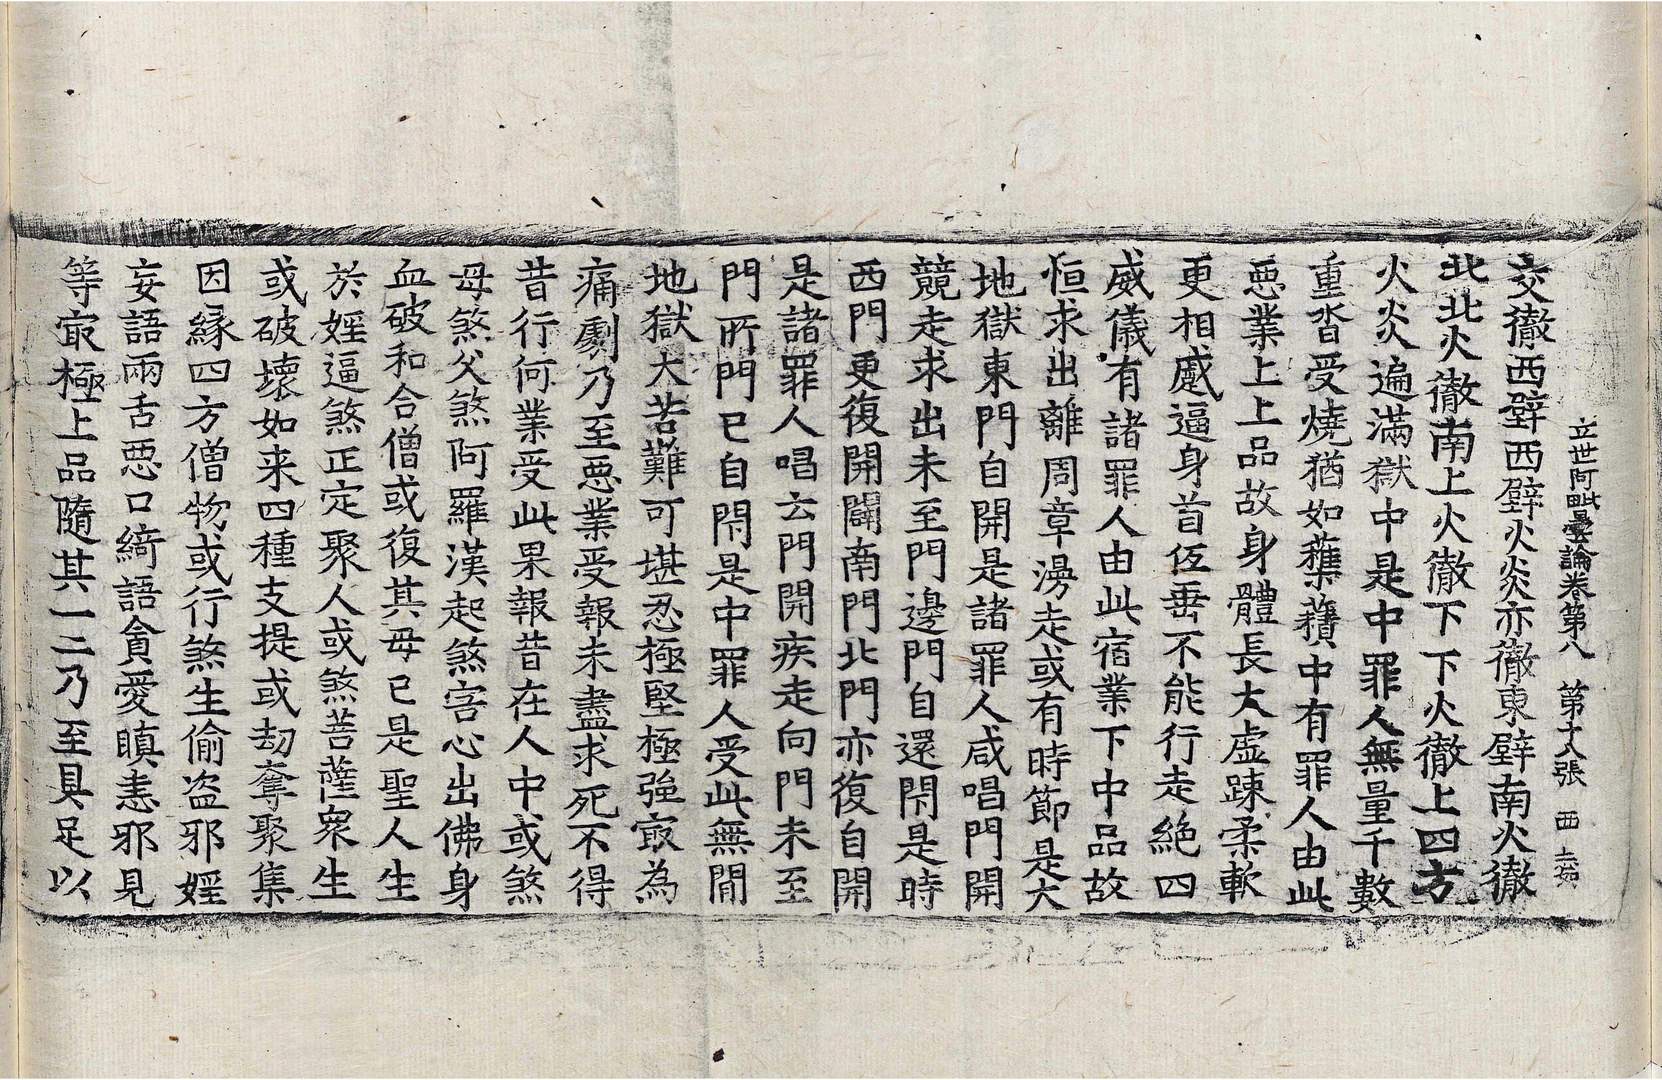 立世阿毗曇論卷第八 第十八張 西
交徹西壁西壁火炎亦徹東壁南火徹
北北火徹南上火徹下下火徹上四方
火炎遍滿獄中是中罪人無量千數
重沓受燒猶如蕉𧂐中有罪人由此
惡業上上品故身體長大虛踈柔軟
更相蹙逼身首低垂不能行走絕四
威儀有諸罪人由此宿業下中品故
恒求出離周章漫走或有時節是大
地獄東門自開是諸罪人咸唱門開
競走求出未至門邊門自還閇是時
西門更復開闢南門北門亦復自開
是諸罪人唱云門開疾走向門未至
門所門已自閇是中罪人受此無間
地獄大苦難可堪忍極堅極強㝡為
痛劇乃至惡業受報未盡求死不得
昔行何業受此果報昔在人中或煞
母煞父煞阿羅漢起煞害心出佛身
血破和合僧或復其母已是聖人生
於婬逼煞正定聚人或煞菩薩眾生
或破壞如来四種支提或刼奪聚集
因緣四方僧物或行煞生偷盜邪婬
妄語兩舌惡口綺語貪愛瞋恚邪見
等㝡極上品隨其一二乃至具足以